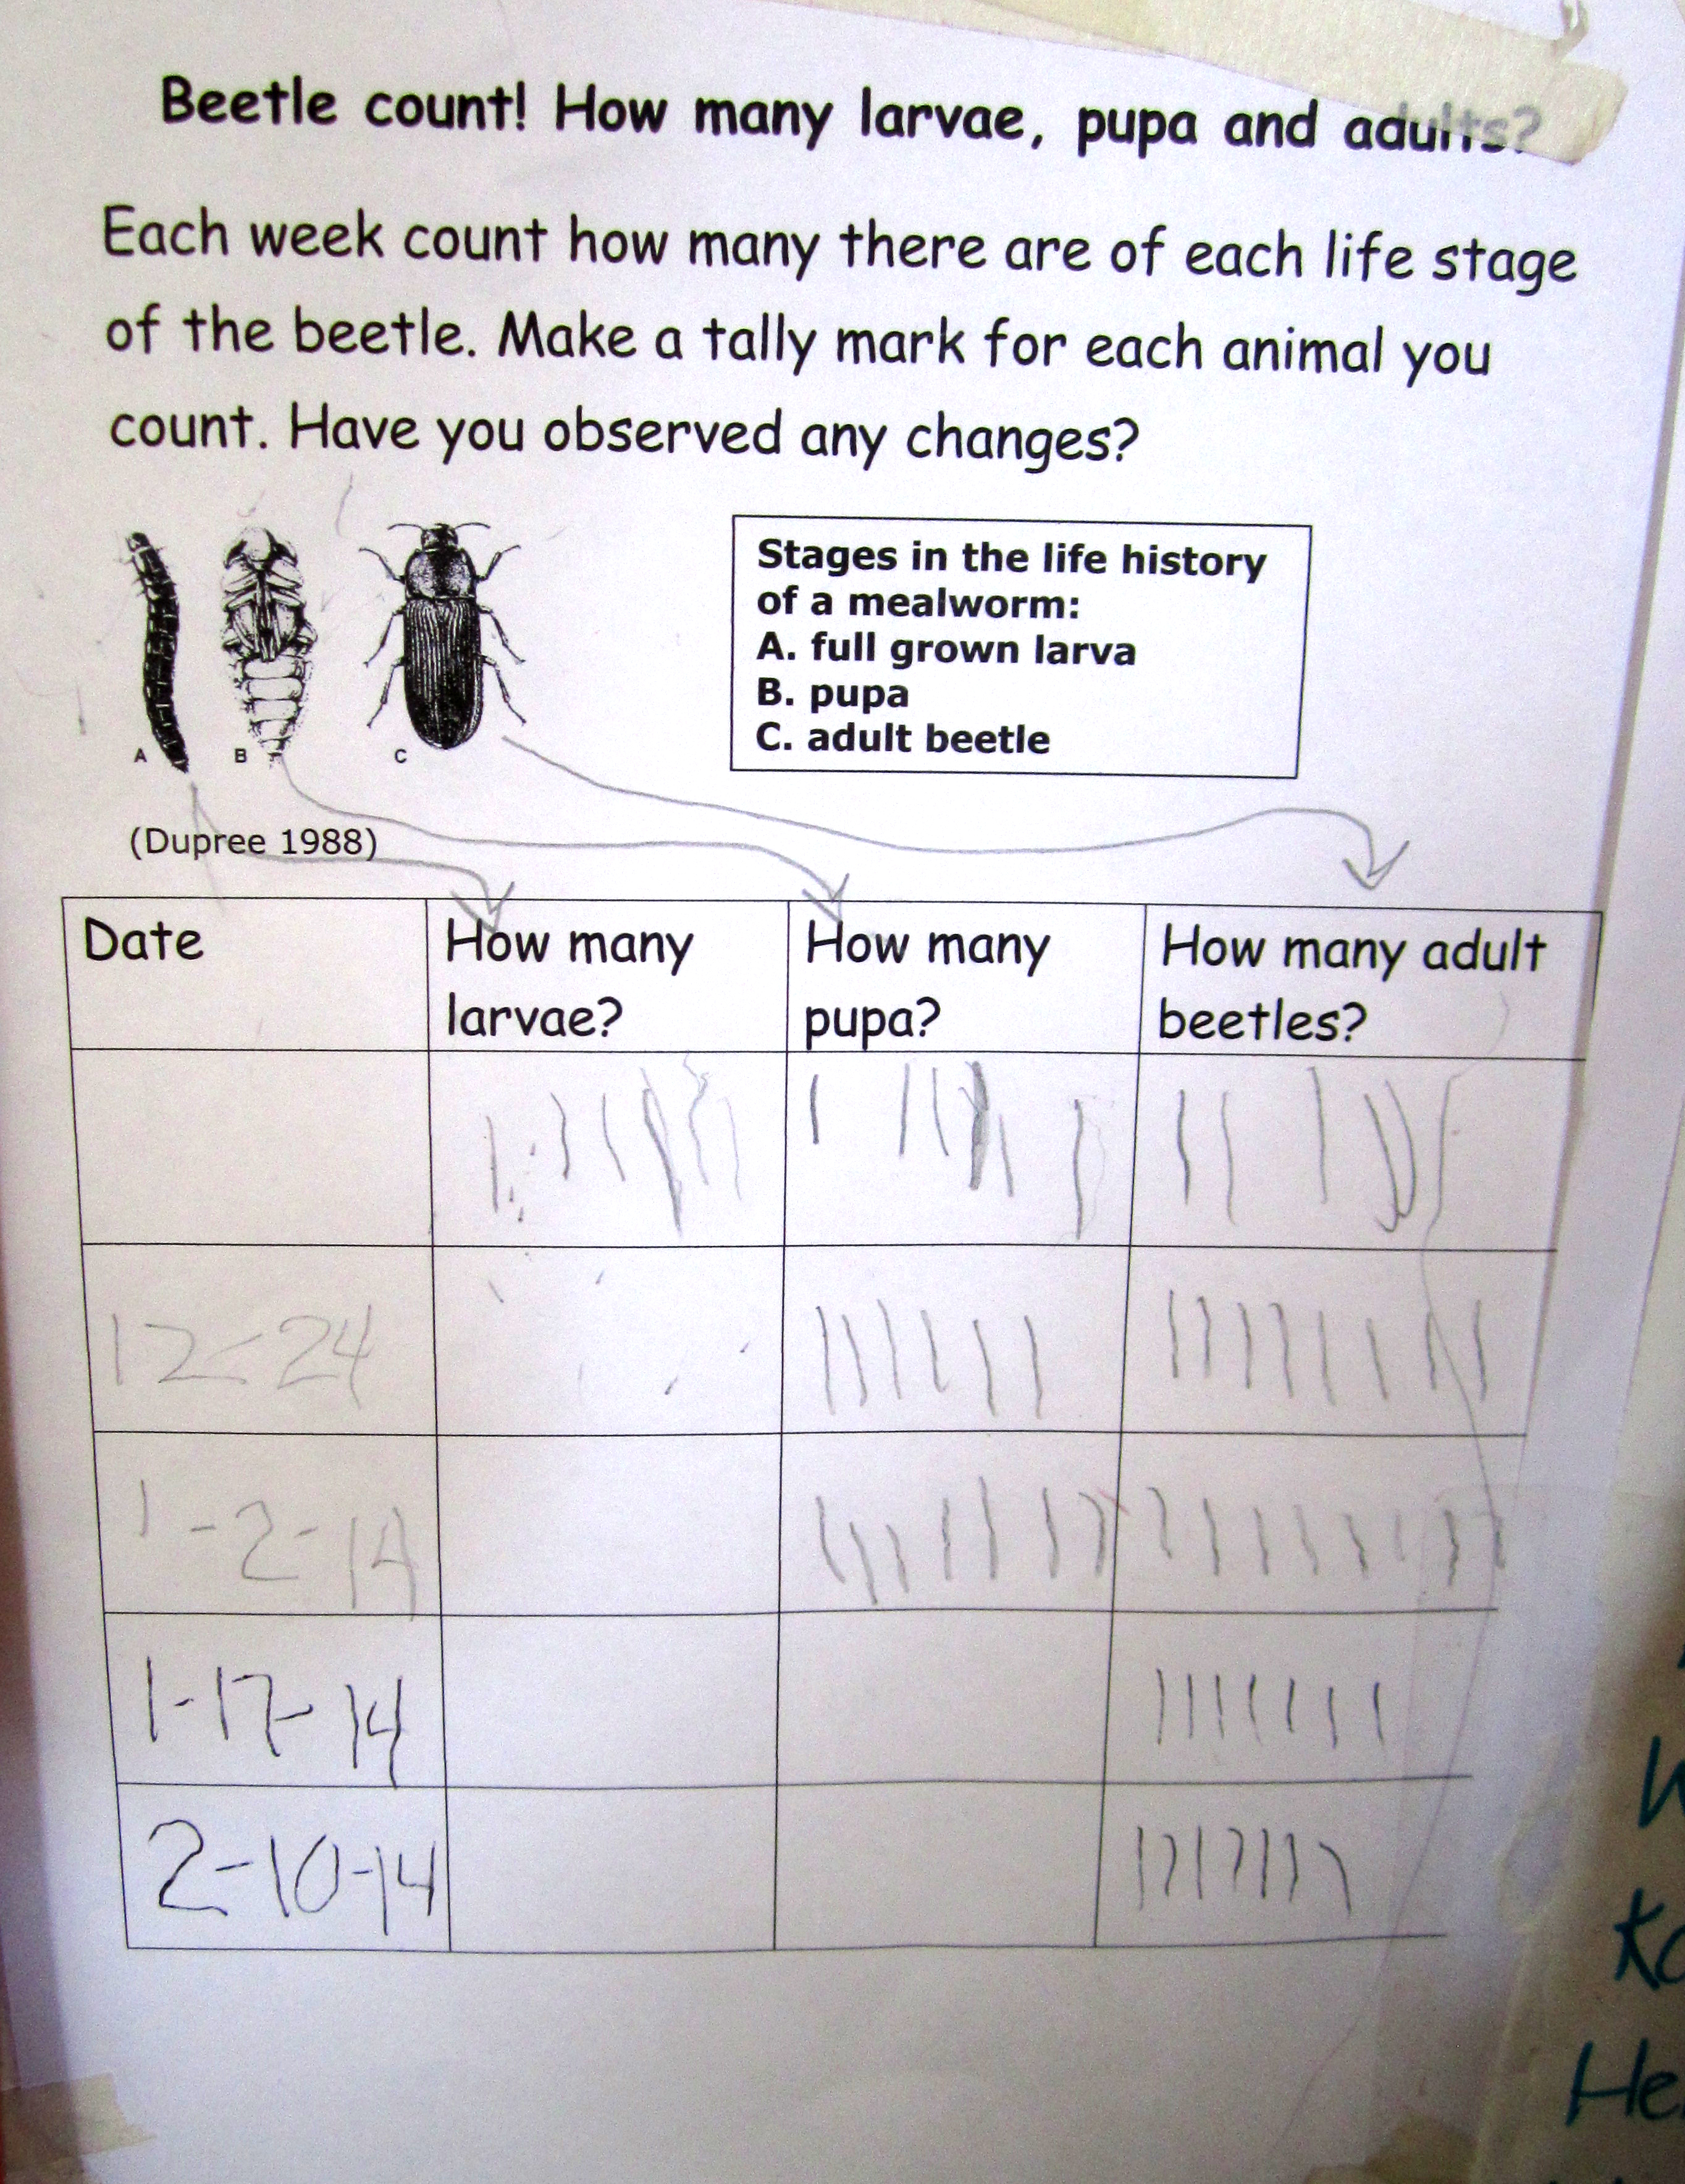 Beetle count! How many larvae, pupa and adults?
Each week count how many there are of each life stage
of the beetle. Make a tally mark for each animal you
count. Have you observed any changes?
Stages in the life history
of a mealworm:
A. full grown larva
B. pupa
C. adult beetle
A B C
(Dupree 1988)
Date How many larvae? How many pupa? How many adult beetles?
12-24
1-2-14
1-17-14
2-10-14